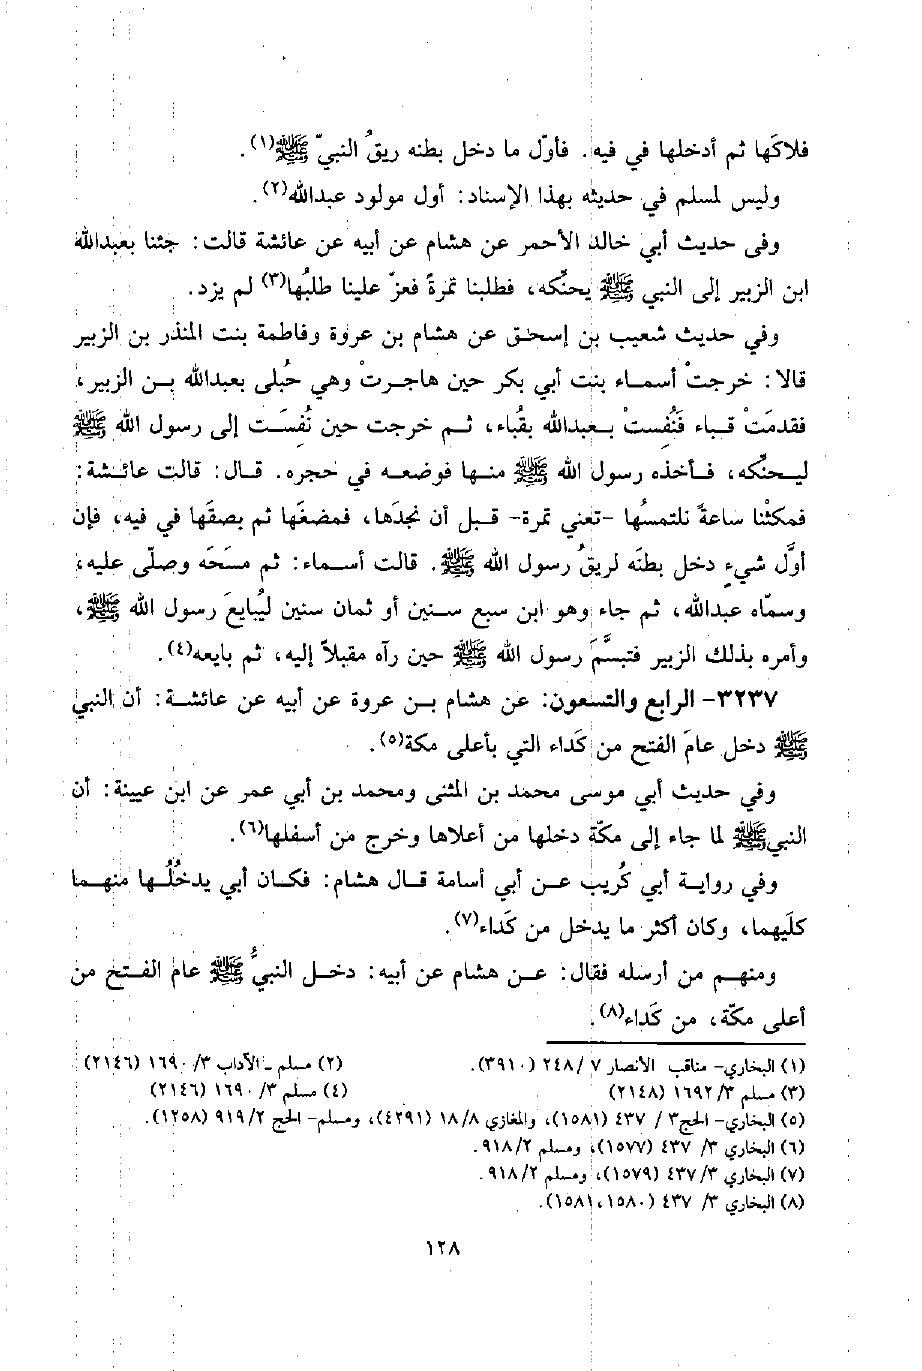 فلاكَها ثم أدخلها في فيه. فأوّل ما دخل بطنه ريقُ النبيّ ﷺ(١).
وليس لمسلم في حديثه بهذا الإسناد: أول مولود عبدالله(٢).
وفى حديث أبي خالد الأحمر عن هشام عن أبيه عن عائشة قالت: جئنا بعبدالله
ابن الزبير إلى النبي ﷺ يحنّكه، فطلبنا تمرةً فعزّ علينا طلبُها(٣) لم يزد.
وفي حديث شعيب بن إسحق عن هشام بن عروة وفاطمة بنت المنذر بن الزبير
قالا: خرجتْ أسماء بنت أبي بكر حين هاجرتْ وهي حُبلى بعبدالله بن الزبير،
فقدمَتْ قباء فَنُفِستْ بعبدالله بقُباء، ثم خرجت حين نُفِسَت إلى رسول الله ﷺ
ليحنّكه، فأخذه رسول الله ﷺ منها فوضعه في حجره. قال: قالت عائشة:
فمكثْنا ساعةً نلتمسُها -تعني تمرة- قبل أن نجدَها، فمضغَها ثم بصقَها في فيه، فإن
أوَّل شيءٍ دخل بطنَه لريقُ رسول الله ﷺ. قالت أسماء: ثم مسَحَه وصلّى عليه،
وسمّاه عبدالله، ثم جاء وهو ابن سبع سنين أو ثمان سنين ليُبايعَ رسول الله ﷺ،
وأمره بذلك الزبير فتبسَّمَ رسول الله ﷺ حين رآه مقبلاً إليه، ثم بايعه(٤).
٣٢٣٧- الرابع والتسعون: عن هشام بن عروة عن أبيه عن عائشة: أن النبي
ﷺ دخل عامَ الفتح من كَداء التي بأعلى مكة(٥).
وفي حديث أبي موسى محمد بن المثنى ومحمد بن أبي عمر عن ابن عيينة: أن
النبي ﷺ لما جاء إلى مكّة دخلها من أعلاها وخرج من أسفلها(٦).
وفي رواية أبي كُريب عن أبي أسامة قال هشام: فكان أبي يدخُلُها منهما
كلَيهما، وكان أكثر ما يدخل من كَداء(٧).
ومنهم من أرسله فقال: عن هشام عن أبيه: دخل النبيُّ ﷺ عامُ الفتح من
أعلى مكّة، من كَداء(٨).
(١) البخاري- مناقب الأنصار ٧ /٢٤٨ (٣٩١٠). (٢) مسلم - الآداب ٣/ ١٦٩٠ (٢١٤٦)
(٣) مسلم ٣/ ١٦٩٢ (٢١٤٨) (٤) مسلم ٣/ ١٦٩٠ (٢١٤٦)
(٥) البخاري- الحج٣ / ٤٣٧ (١٥٨١)، والمغازي ٨/ ١٨ (٤٢٩١)، ومسلم- الحج ٢/ ٩١٩ (١٢٥٨).
(٦) البخاري ٣/ ٤٣٧ (١٥٧٧)، ومسلم ٢/ ٩١٨.
(٧) البخاري ٣/ ٤٣٧ (١٥٧٩)، ومسلم ٢/ ٩١٨.
(٨) البخاري ٣/ ٤٣٧ (١٥٨٠، ١٥٨١).
١٢٨